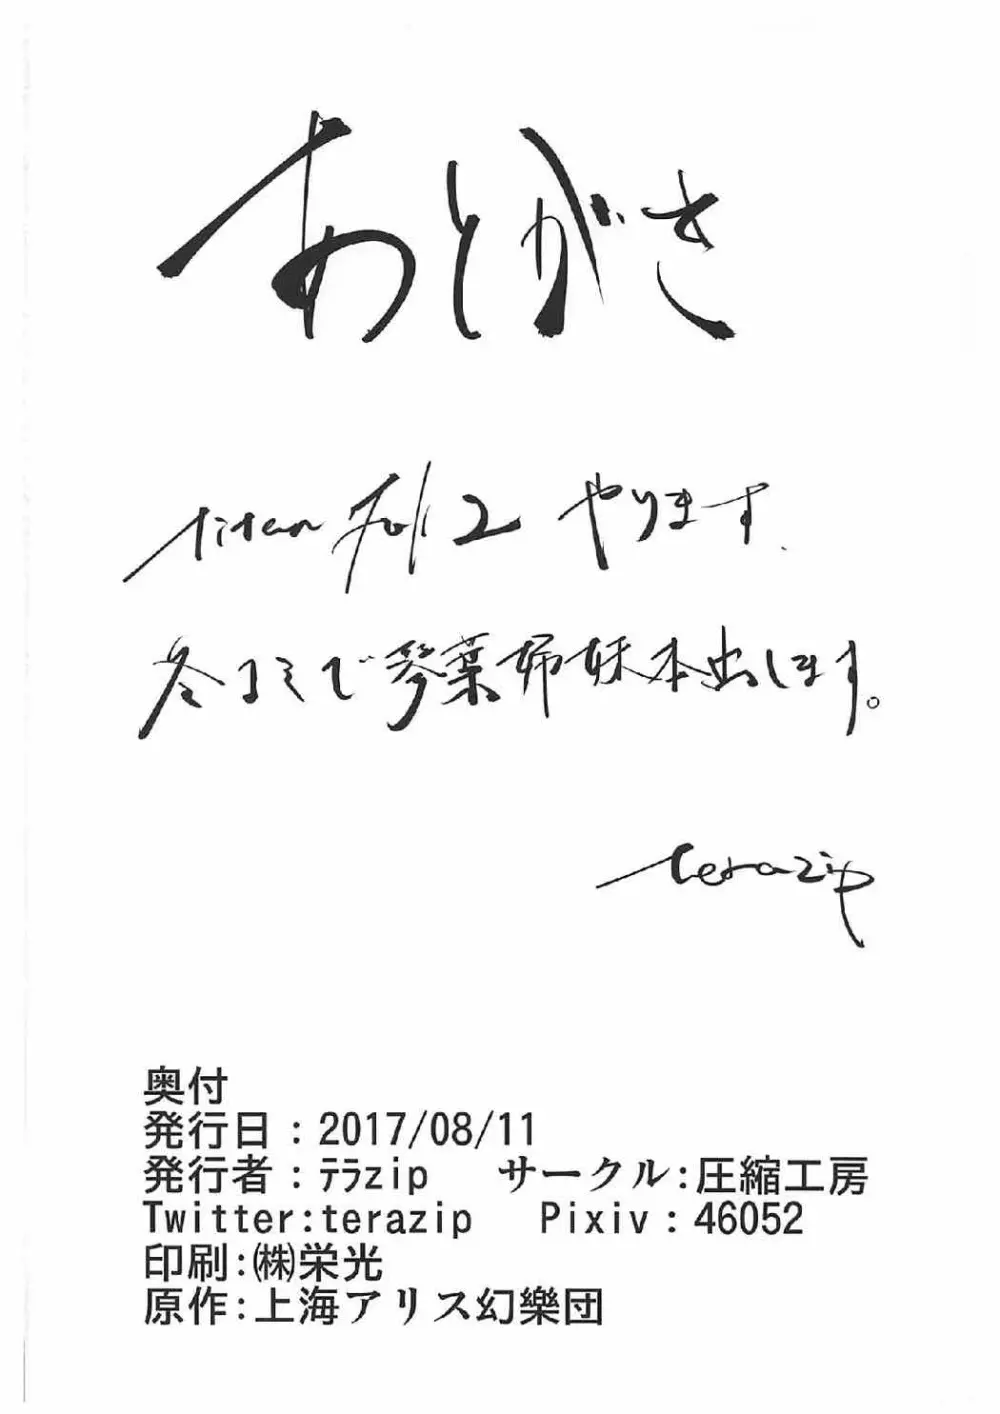 あとがき
titan fall 2 やります.
冬コミで琴葉姉妹本出します。
terazip
奥付
発行日：2017/08/11
発行者：ﾃﾗzip サークル：圧縮工房
Twitter:terazip Pixiv：46052
印刷：㈱栄光
原作：上海アリス幻樂団